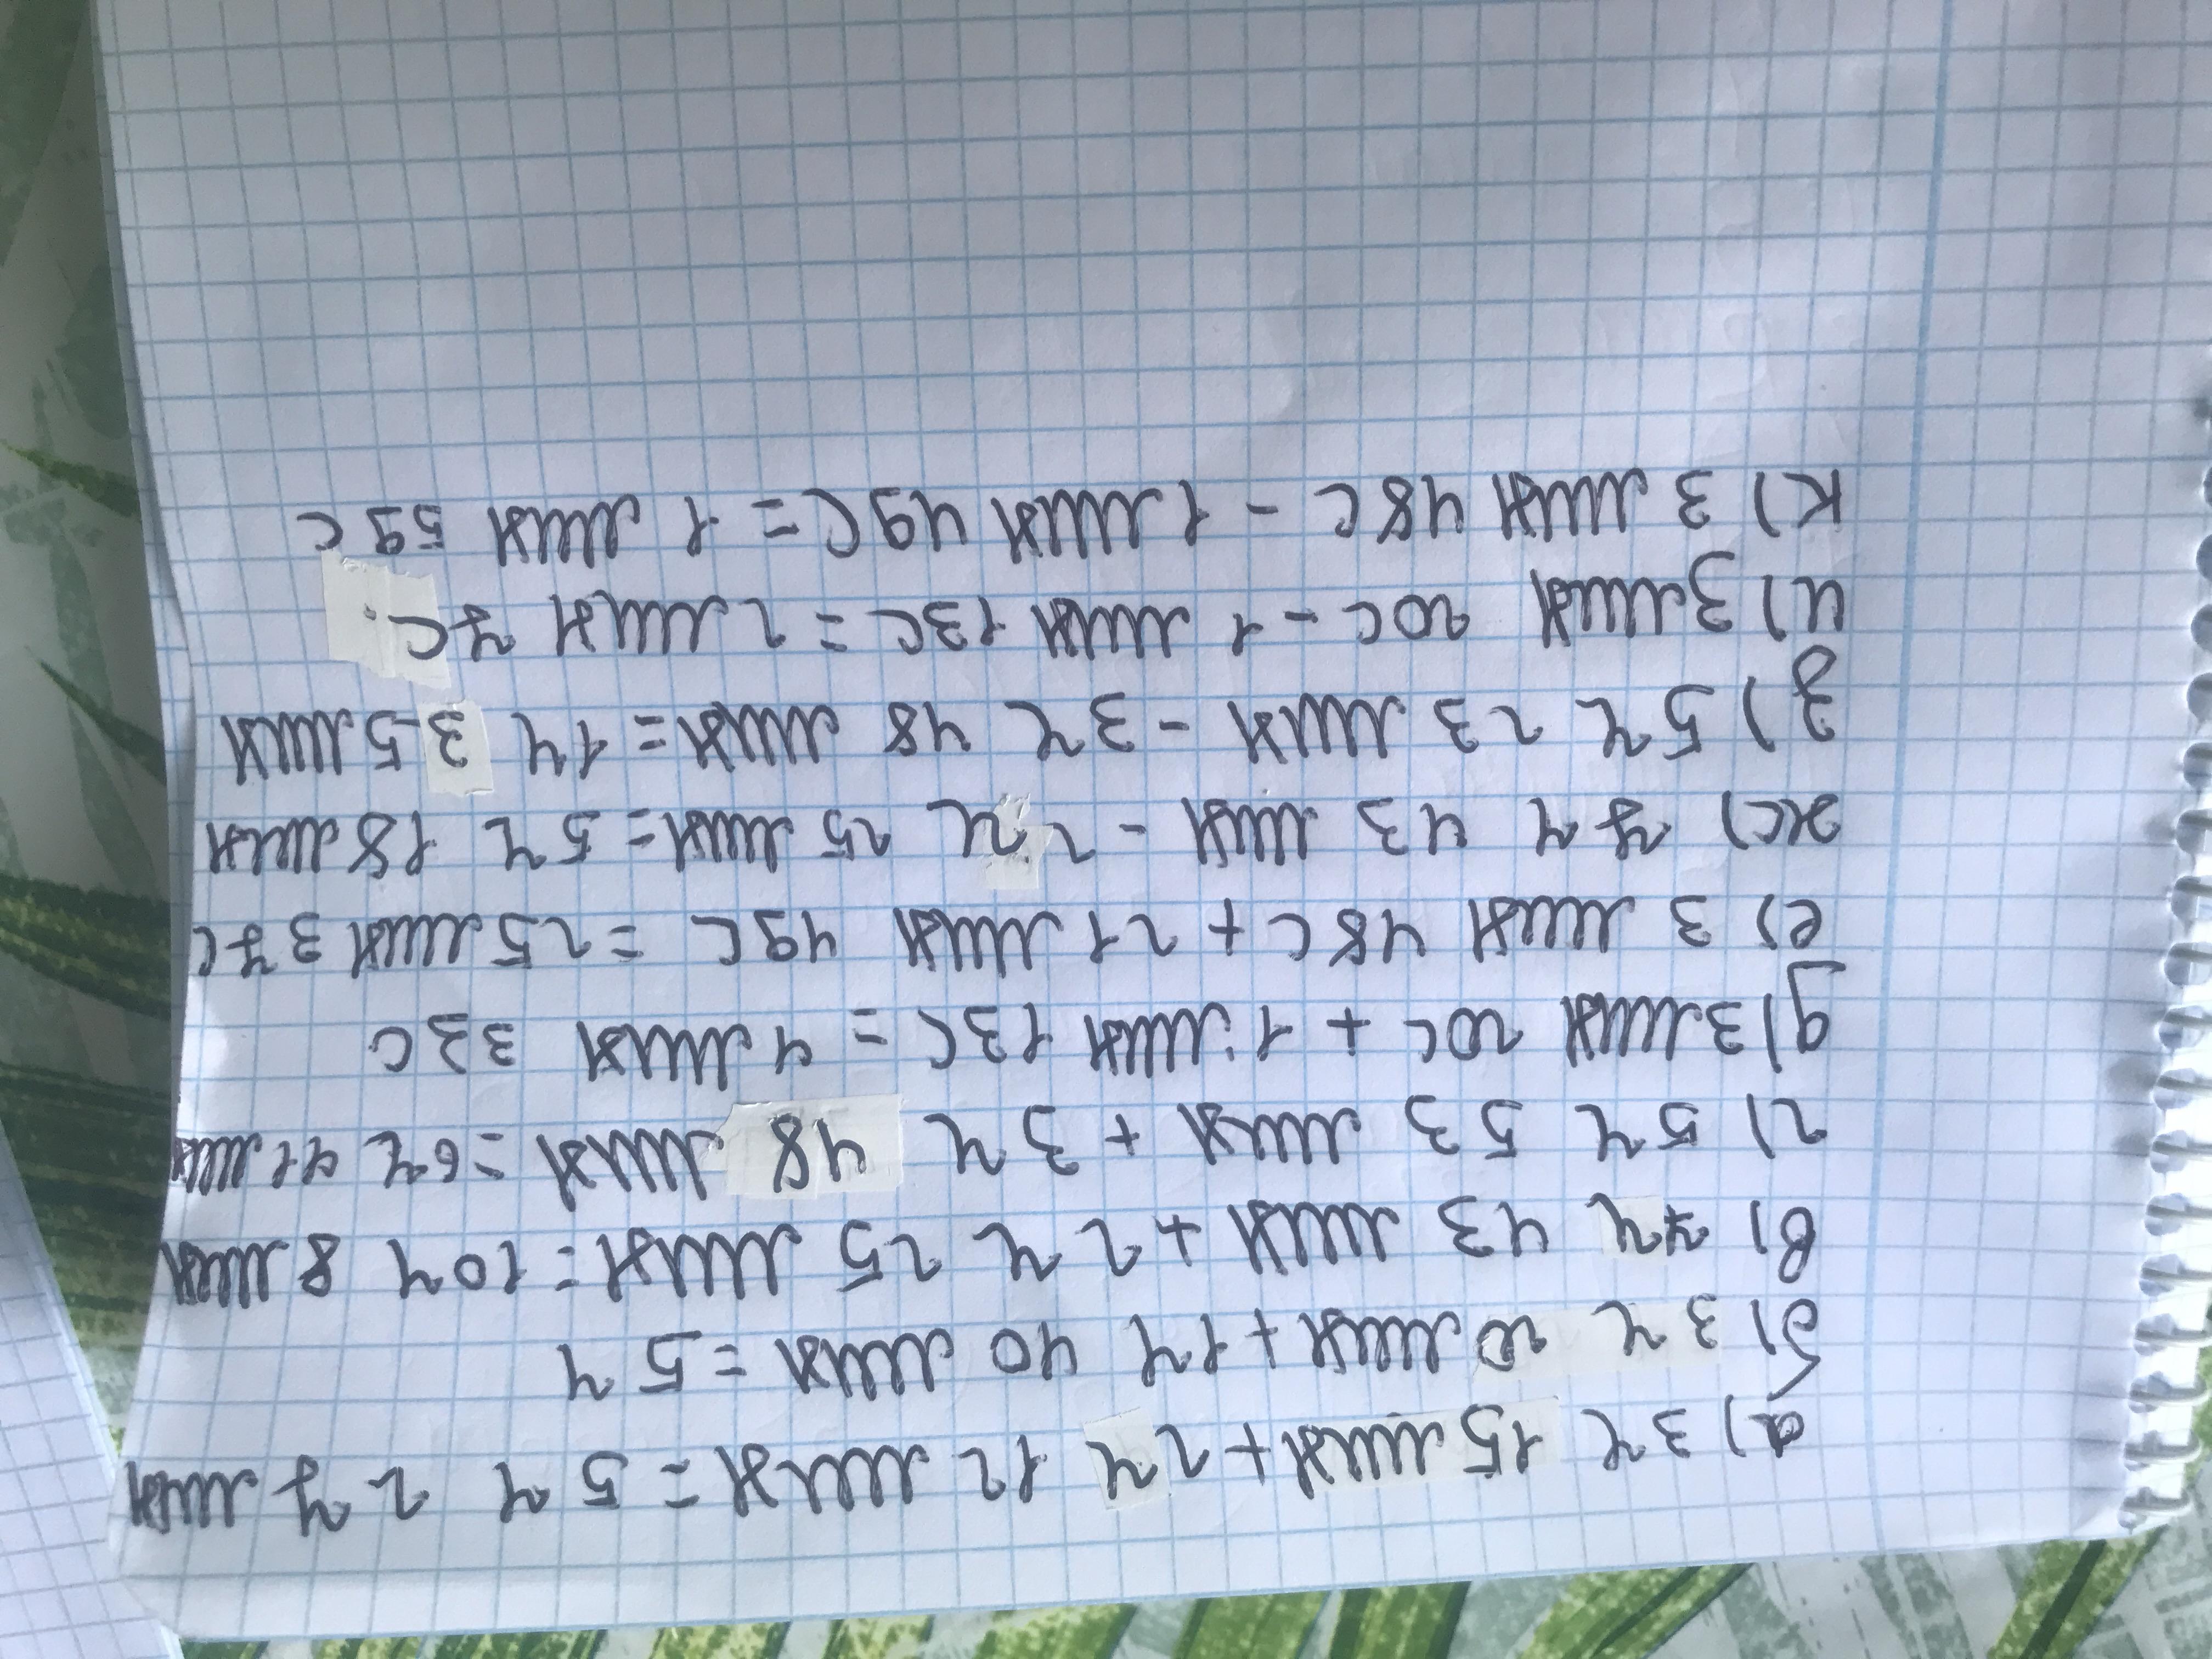 а) 3ч 15 мин + 2ч 12 мин = 5ч 27 мин
б) 3ч 20 мин + 1ч 40 мин = 5ч
в) 7ч 43 мин + 2ч 25 мин = 10ч 8 мин
г) 5ч 53 мин + 3ч 48 мин = 6ч 41 мин
д) 3 мин 20с + 1 мин 13с = 4 мин 33с
е) 3 мин 48с + 21 мин 49с = 25 мин 37с
ж) 7ч 43 мин - 2ч 25 мин = 5ч 18 мин
з) 5ч 23 мин - 3ч 48 мин = 1ч 35 мин
и) 3 мин 20с - 1 мин 13с = 2 мин 7с.
к) 3 мин 48с - 1 мин 49с = 1 мин 59с